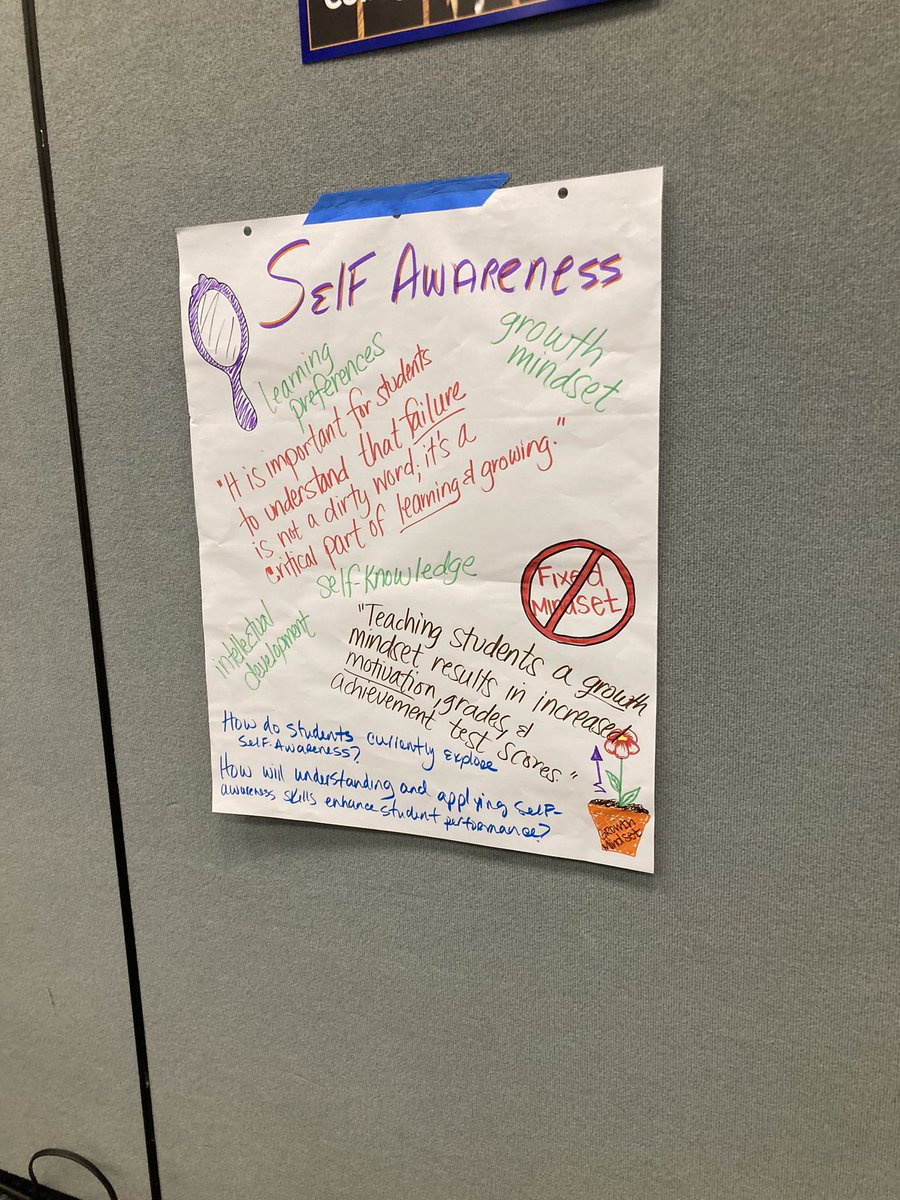 Self Awareness
learning
preferences
growth
mindset
"It is important for students
to understand that failure
is not a dirty word; it's a
critical part of learning & growing."
self-knowledge
Fixed
Mindset
intellectual
development
"Teaching students a growth
mindset results in increased
motivation, grades, &
achievement test scores."
How do students currently explore
Self-Awareness?
How will understanding and applying self-
awareness skills enhance student performance?
Growth
Mindset